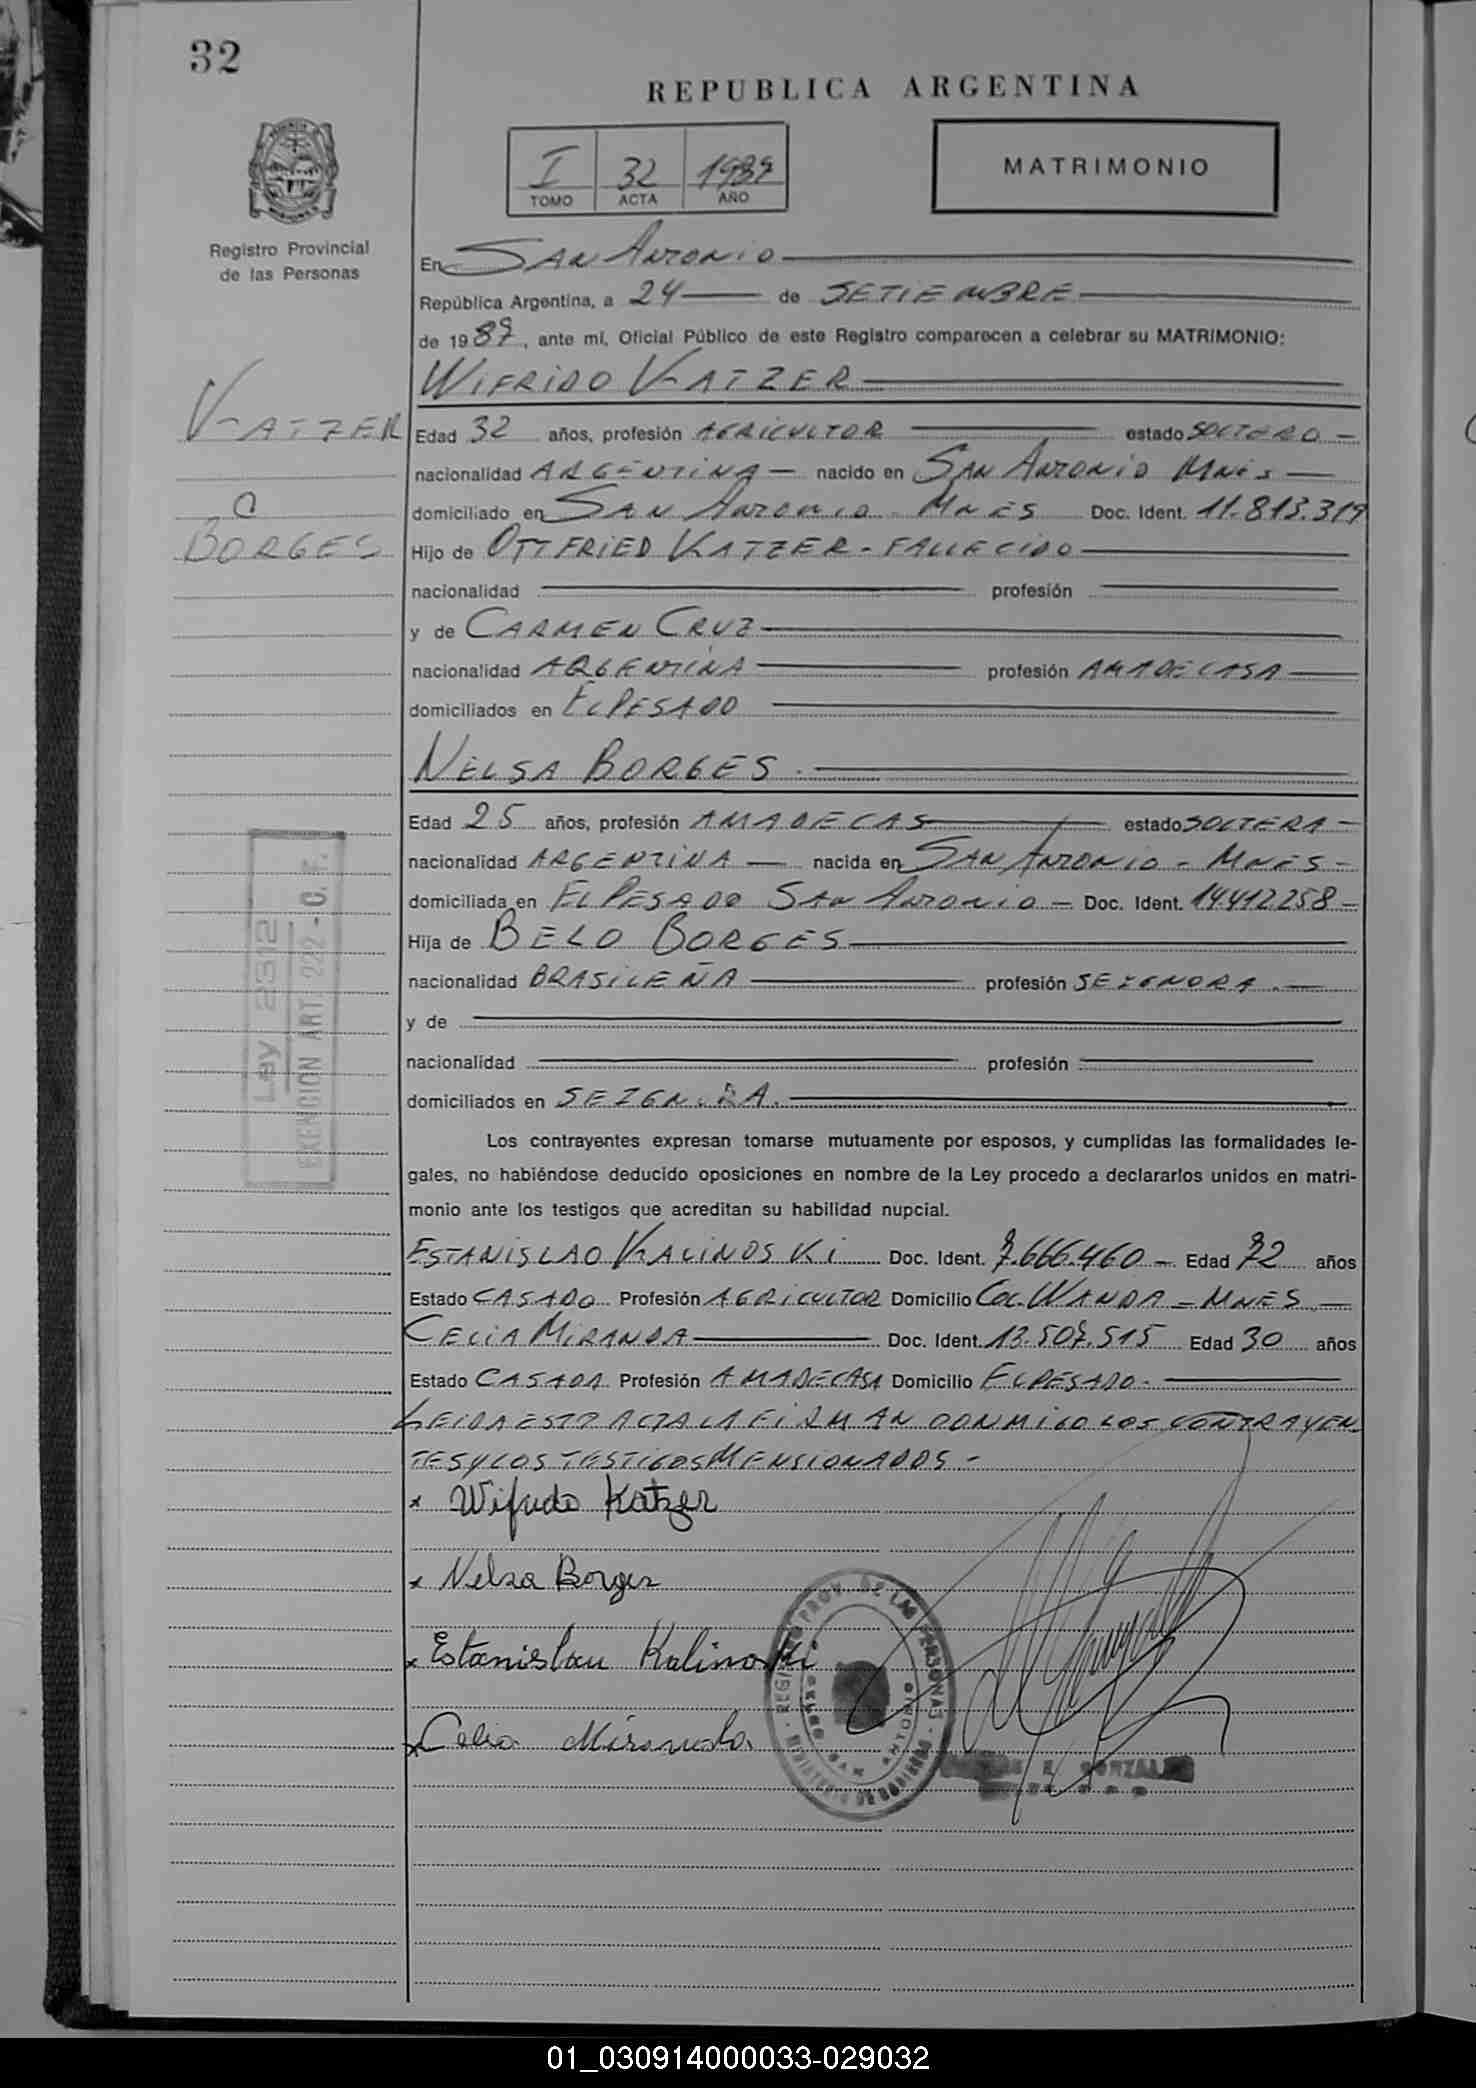 32
REPUBLICA ARGENTINA
I 32 1987
TOMO ACTA AÑO
MATRIMONIO
Registro Provincial
de las Personas
En SAN ANTONIO
República Argentina, a 24 de SETIEMBRE
de 1987, ante mí, Oficial Público de este Registro comparecen a celebrar su MATRIMONIO:
WIFRIDO KATZER
KATZER
C
BORGES
Edad 32 años, profesión AGRICULTOR estado SOLTERO
nacionalidad ARGENTINA nacido en SAN ANTONIO MNES
domiciliado en SAN ANTONIO - MNES Doc. Ident. 11.813.319
Hijo de OTTFRIED KATZER - FALLECIDO
nacionalidad profesión
y de CARMEN CRUZ
nacionalidad ARGENTINA profesión AMADECASA
domiciliados en EL PESADO
NELSA BORGES
Edad 25 años, profesión AMADECAS estado SOLTERA
nacionalidad ARGENTINA nacida en SAN ANTONIO - MNES
domiciliada en EL PESADO SAN ANTONIO Doc. Ident. 14.412.258
Hija de BELO BORGES
nacionalidad BRASILEÑA profesión SEIGNORA
y de
nacionalidad profesión
domiciliados en SEIGN.RA.
Ley 2312
EXENCION ART. 222 - C. F.
Los contrayentes expresan tomarse mutuamente por esposos, y cumplidas las formalidades le-
gales, no habiéndose deducido oposiciones en nombre de la Ley procedo a declararlos unidos en matri-
monio ante los testigos que acreditan su habilidad nupcial.
ESTANISLAO KALINOSKI Doc. Ident. 7.666.460 Edad 72 años
Estado CASADO Profesión AGRICULTOR Domicilio COL. WANDA - MNES
CELIA MIRANDA Doc. Ident. 13.507.515 Edad 30 años
Estado CASADA Profesión AMADECASA Domicilio EL PESADO
LEIDA ESTA ACTA LA FIRMAN CONMIGO LOS CONTRAYEN
TES Y LOS TESTIGOS MENSIONADOS -
x Wifrido Katzer
x Nelsa Borges
x Estanislau Kalinoski
x Celia Miranda
REGISTRO PROV. DE LAS PERSONAS
MINISTERIO DE GOBIERNO
SAN ANTONIO
GONZALEZ
01_030914000033-029032